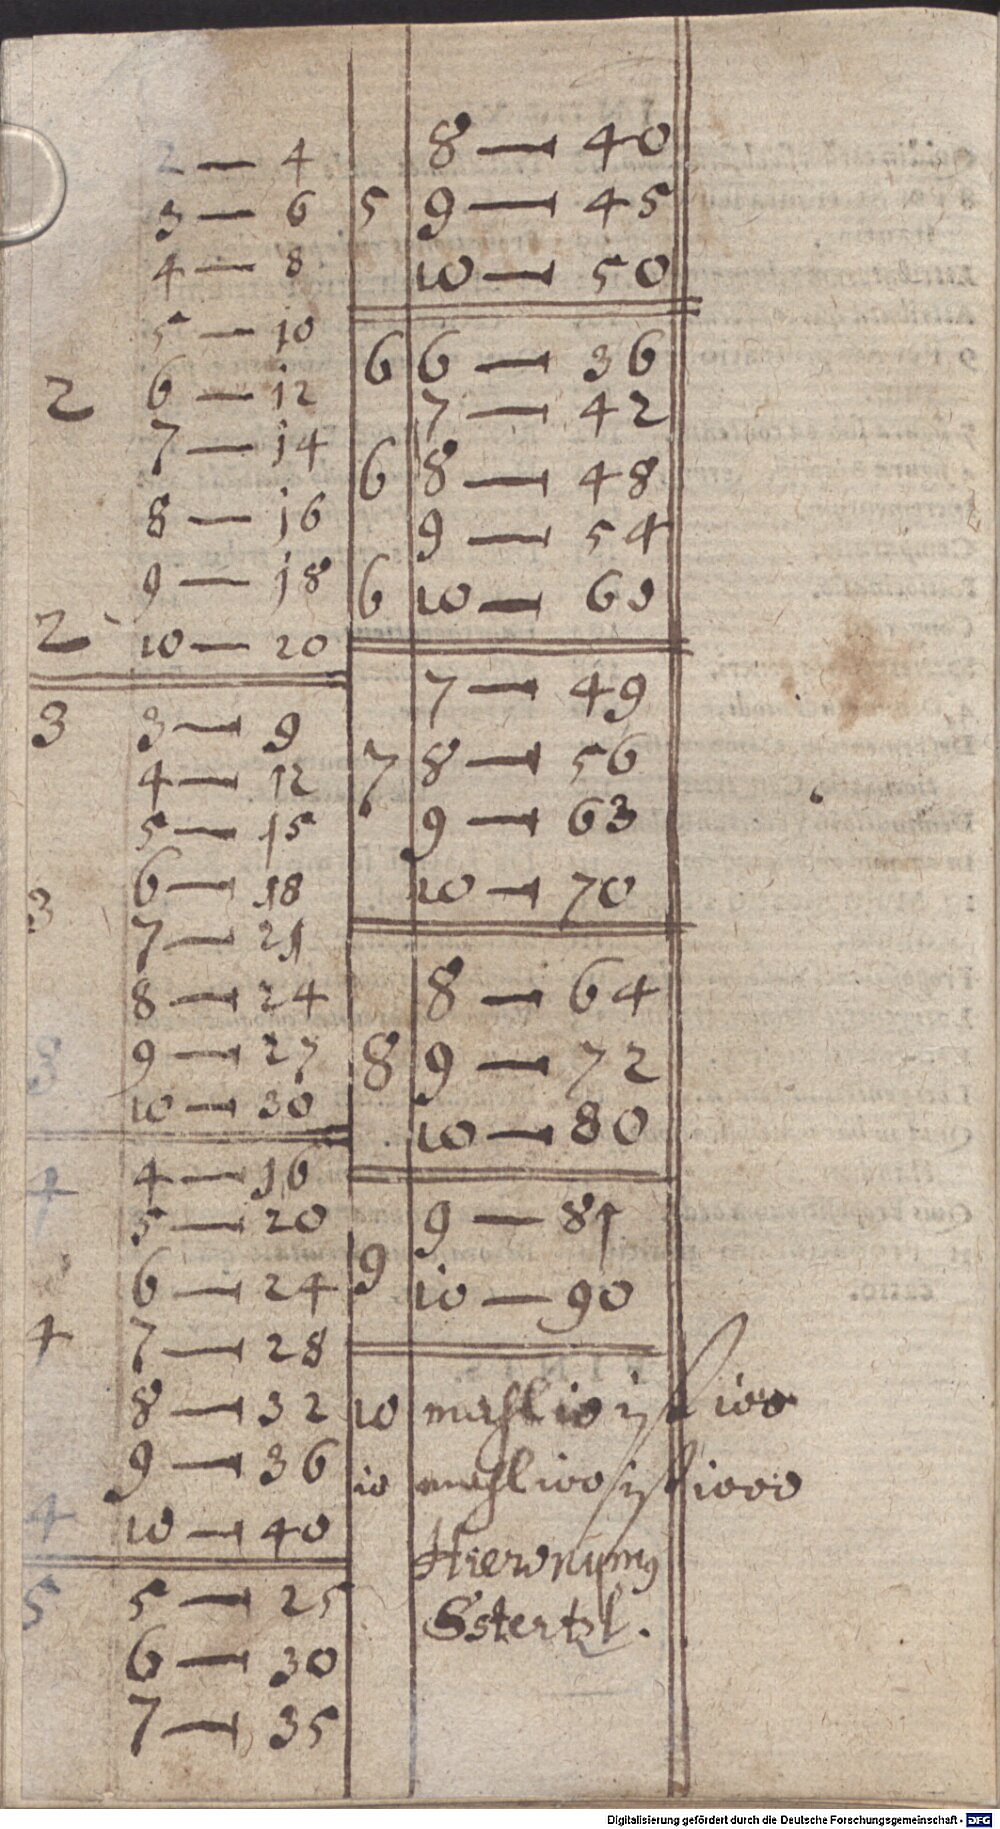 2 — 4
3 — 6
4 — 8
5 — 10
2 6 — 12
7 — 14
8 — 16
9 — 18
2 10 — 20
3 3 — 9
4 — 12
5 — 15
6 — 18
3 7 — 21
8 — 24
3 9 — 27
10 — 30
4 4 — 16
5 — 20
6 — 24
4 7 — 28
8 — 32
9 — 36
4 10 — 40
5 5 — 25
6 — 30
7 — 35
8 — 40
5 9 — 45
10 — 50
6 6 — 36
7 — 42
6 8 — 48
9 — 54
6 10 — 60
7 — 49
7 8 — 56
9 — 63
10 — 70
8 — 64
8 9 — 72
10 — 80
9 — 81
9 10 — 90
10 mahl 10 ist 100
10 mahl 100 ist 1000
Hieronymus
Sstertzl.
Digitalisierung gefördert durch die Deutsche Forschungsgemeinschaft - DFG